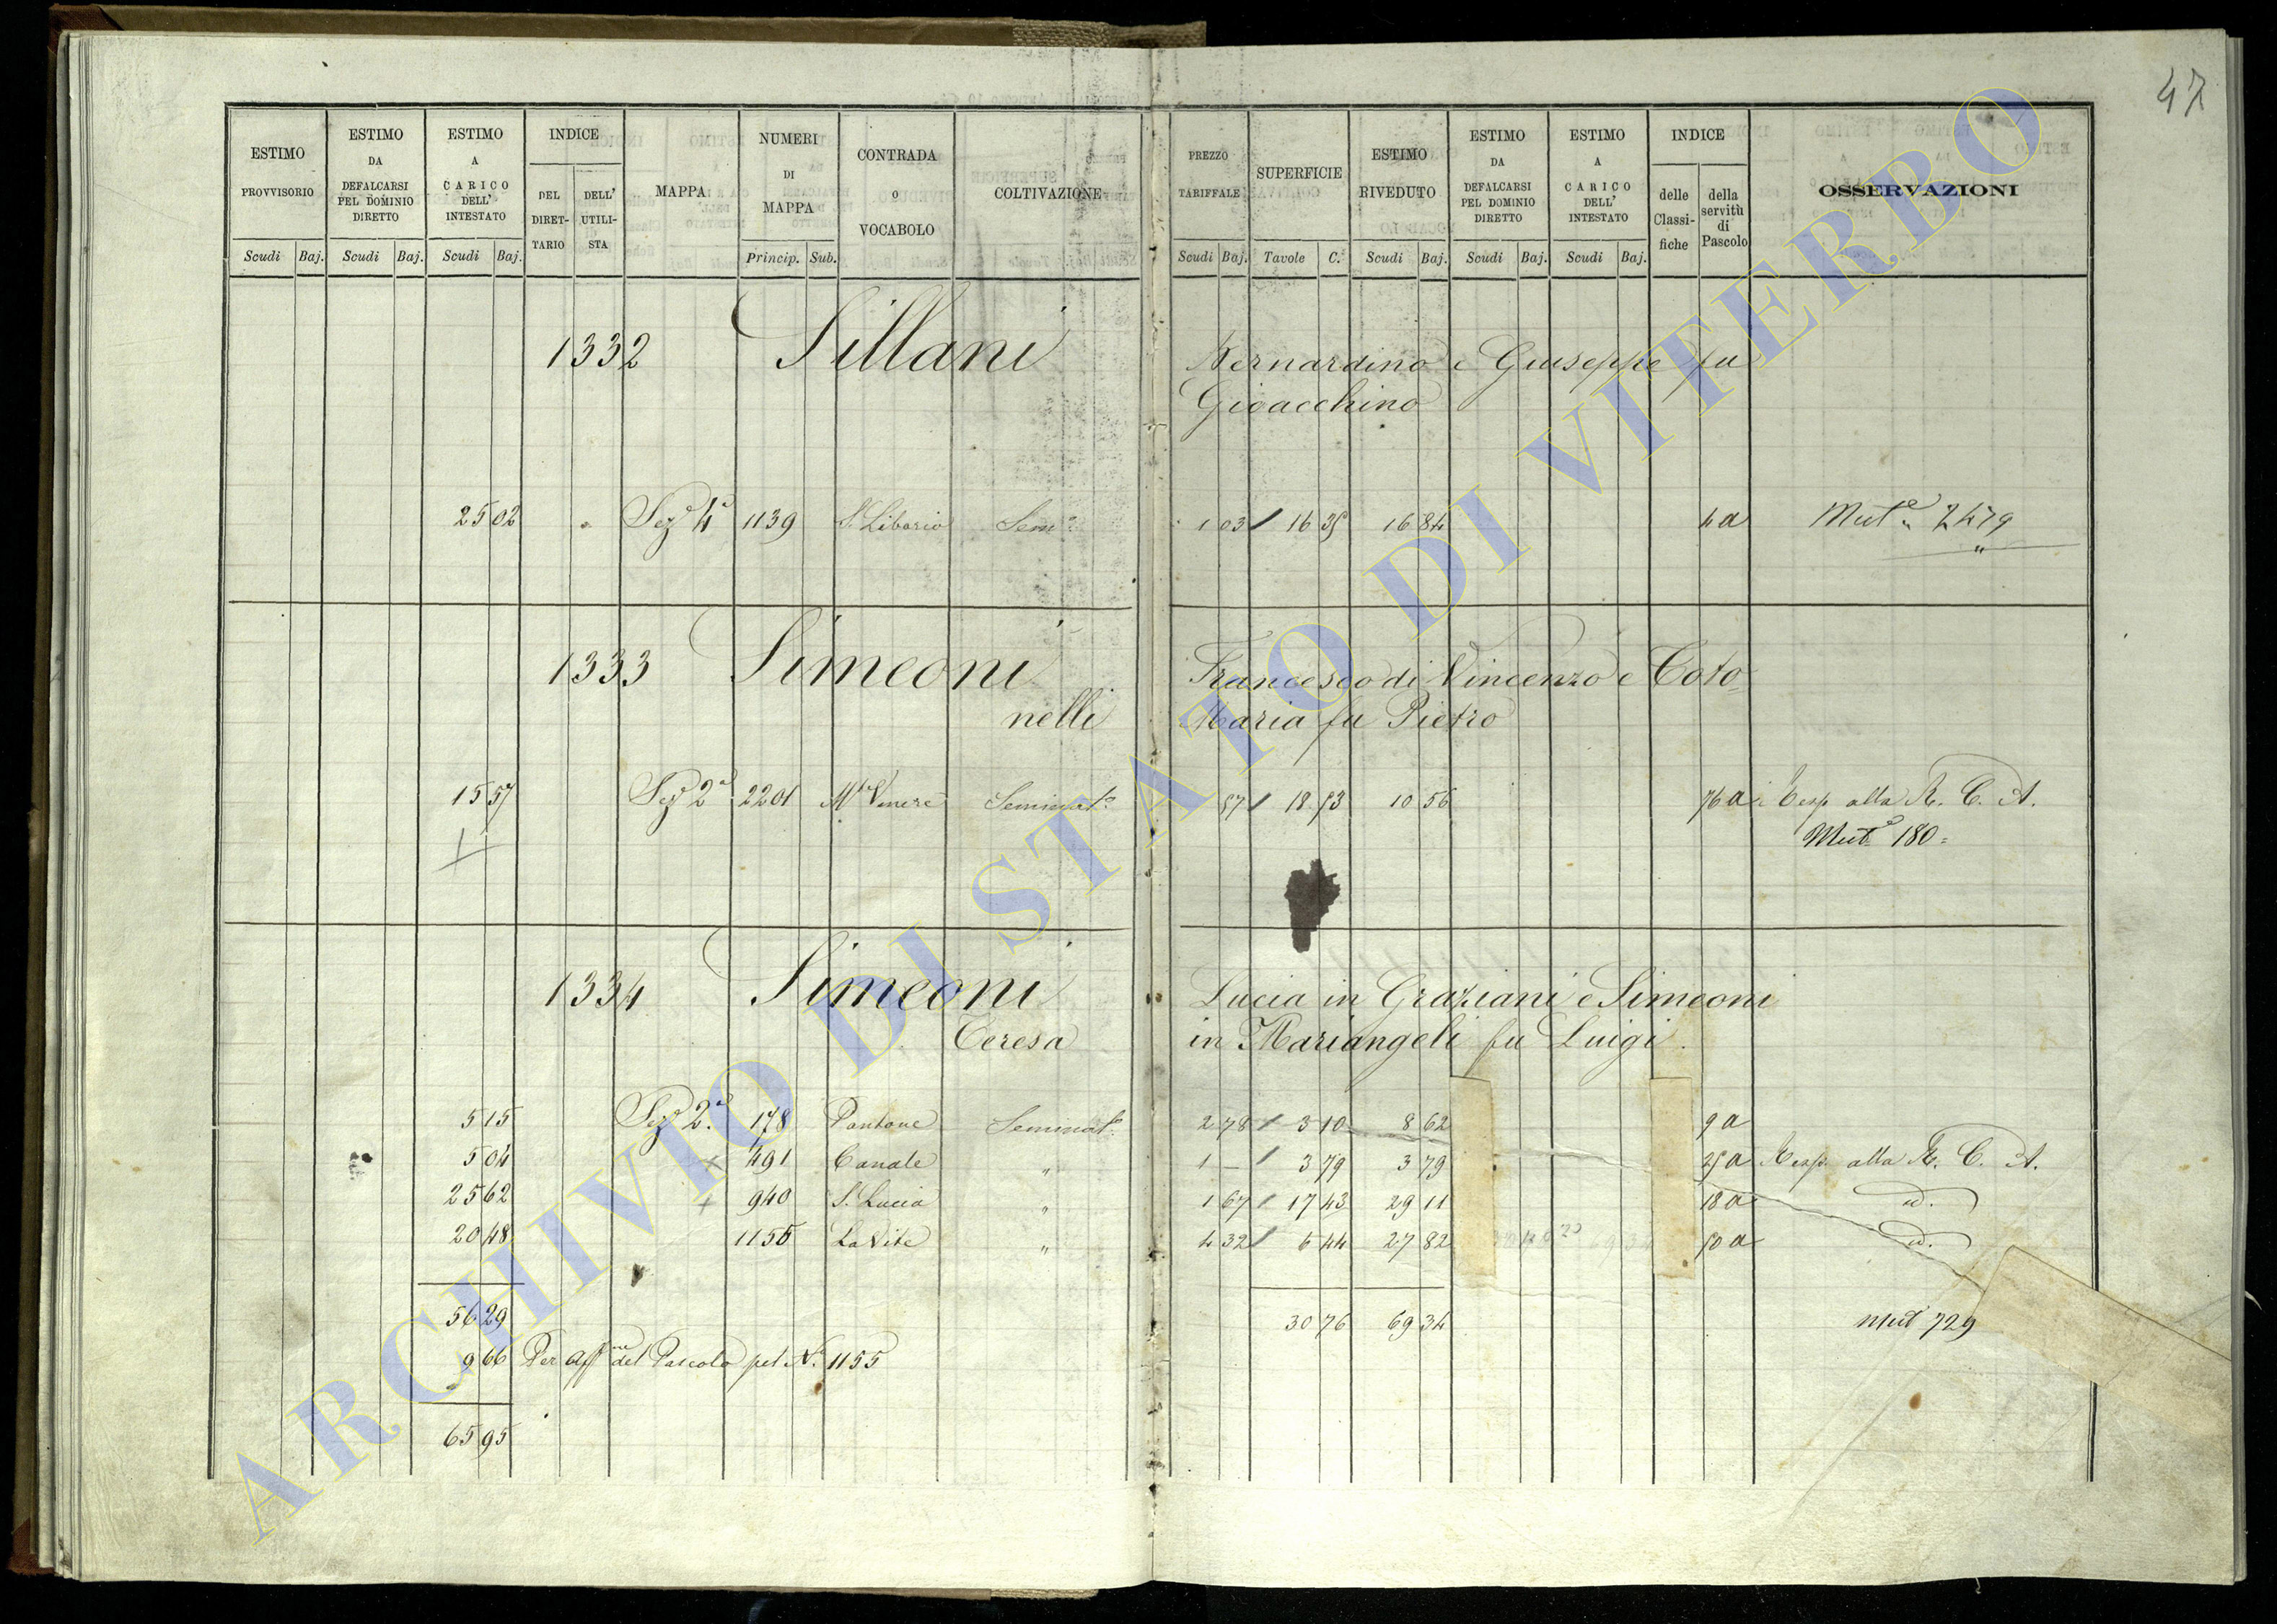 47
ESTIMO PROVVISORIO
ESTIMO DA DEFALCARSI PEL DOMINIO DIRETTO
ESTIMO A CARICO DELL' INTESTATO
INDICE
DEL DIRET-TARIO
DELL' UTILI-STA
MAPPA
NUMERI DI MAPPA
CONTRADA o VOCABOLO
COLTIVAZIONE
PREZZO TARIFFALE
SUPERFICIE
ESTIMO RIVEDUTO
ESTIMO DA DEFALCARSI PEL DOMINIO DIRETTO
ESTIMO A CARICO DELL' INTESTATO
INDICE
delle Classi-fiche
della servitù di Pascolo
OSSERVAZIONI
Scudi Baj. Scudi Baj. Scudi Baj. Princip. Sub. Scudi Baj. Tavole C. Scudi Baj. Scudi Baj. Scudi Baj.
1332 Sillani Bernardino e Giuseppe fu
Gioacchino
25 02 Sez.e 4a 1139 S. Liborio Sem.o 1 03 16 35 16 84 4 a Mut.e 2479
1333 Simeoni Francesco di Vincenzo e Coto=
nelli Maria fu Pietro
15 57 Sez.e 2a 2201 M.te Venere Seminat.o 57 18 53 10 56 76 a Resp. alla R. C. A.
Mut.e 180=
1334 Simeoni Lucia in Graziani e Simeoni
Teresa in Mariangeli fu Luigi
5 15 Sez.e 2a 178 Pantane Seminat.o 2 78 3 10 8 62 9 a
5 04 + 491 Canale " 1 — 3 79 3 79 25 a Resp. alla R. C. A.
25 62 + 940 S. Lucia " 1 67 17 43 29 11 18 a id.
20 48 1155 La Vite " 4 32 6 44 27 82 50 a id.
56 29 30 76 69 34 Mut 729
9 66 Per aff.ne del Pascolo pel N. 1155
65 95
ARCHIVIO DI STATO DI VITERBO